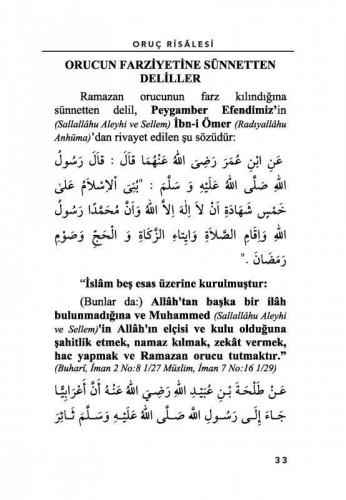 ORUÇ RİSÂLESİ
ORUCUN FARZİYETİNE SÜNNETTEN
DELİLLER
Ramazan orucunun farz kılındığına
sünnetten delil, Peygamber Efendimiz'in
(Sallallâhu Aleyhi ve Sellem) İbn-i Ömer (Radıyallâhu
Anhüma)'dan rivayet edilen şu sözüdür:
عَنِ ابْنِ عُمَرَ رَضِىَ اللهُ عَنْهُمَا قَالَ : قَالَ رَسُولُ
اللهِ صَلَّى اللهُ عَلَيْهِ وَ سَلَّمَ : "بُنِىَ اْلاِسْلاَمُ عَلىَ
خَمْسٍ شَهَادَةِ اَنْ لاَ اِلهَ اِلاَّ اللهُ وَاَنَّ مُحَمَّدًا رَسُولُ
اللهِ وَاِقَامِ الصَّلاَةِ وَاِيتَاءِ الزَّكَاةِ وَ الْحَجِّ وَصَوْمِ
رَمَضَانَ ."
"İslâm beş esas üzerine kurulmuştur:
(Bunlar da:) Allâh'tan başka bir ilâh
bulunmadığına ve Muhammed (Sallallâhu Aleyhi
ve Sellem)'in Allâh'ın elçisi ve kulu olduğuna
şahitlik etmek, namaz kılmak, zekât vermek,
hac yapmak ve Ramazan orucu tutmaktır."
(Buhari, İman 2 No:8 1/27 Müslim, İman 7 No:16 1/29)
عَنْ طَلْحَةَ بْنِ عُبَيْدِ اللهِ رَضِيَ اللهُ عَنْهُ أَنَّ أَعْرَابِيًّا
جَاءَ إِلَى رَسُولِ اللهِ صَلَّى اللهُ عَلَيْهِ وَسَلَّمَ ثَائِرَ
33